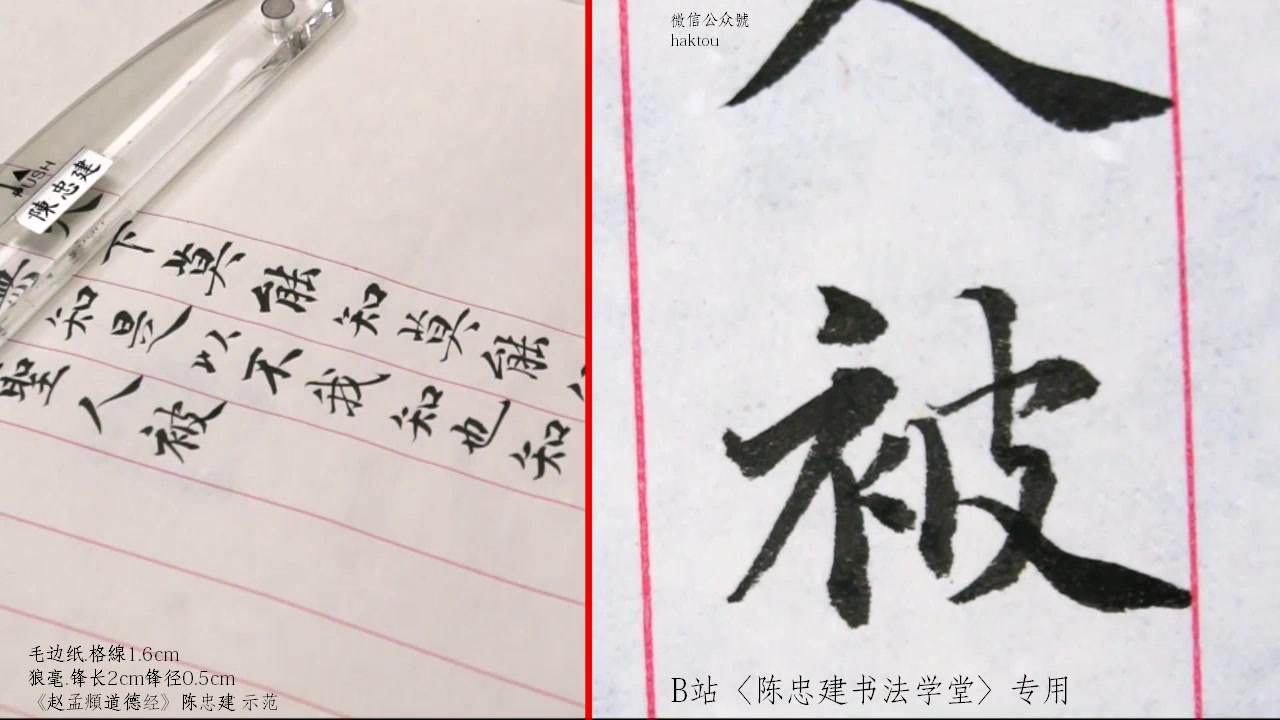 PUSH
陳忠建
下莫能知莫能
知是以不我知也知
聖人被
毛边纸.格線1.6cm
狼毫.锋长2cm锋径0.5cm
《赵孟頫道德经》陈忠建 示范
微信公众號
haktou
人
被
B站〈陈忠建书法学堂〉专用